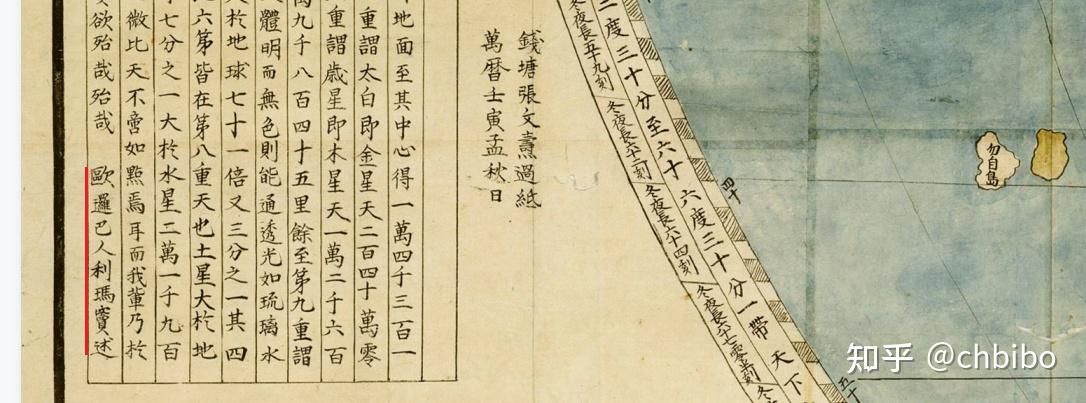 勿自島
四十
五十
度三十分至六十六度三十分一帶天下
冬夜長五十九刻
冬夜長六十二刻
冬夜長六十四刻
冬夜長六十七零
錢塘張文燾過紙
萬曆壬寅孟秋日
地面至其中心得一萬四千三百一
重謂太白即金星天二百四十萬零
重謂歲星即木星天一萬二千六百
萬九千八百四十五里餘至第九重謂
體明而無色則能通透光如琉璃水
於地球七十一倍又三分之一其四
六第皆在第八重天也土星大於地
七分之一大於水星二萬一千九百
微比天不啻如點焉耳而我輩乃於
欲殆哉殆哉 歐邏巴人利瑪竇述
知乎 @chbibo